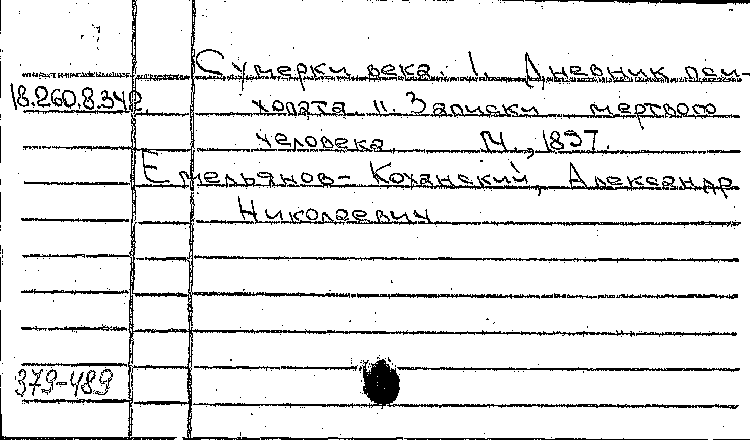 Сумерки века. I. Дневник пси-
18.260.8.342 хопата. II. Записки мертвого
человека. М., 1897.
Емельянов-Коханский, Александр
Николаевич
379-489